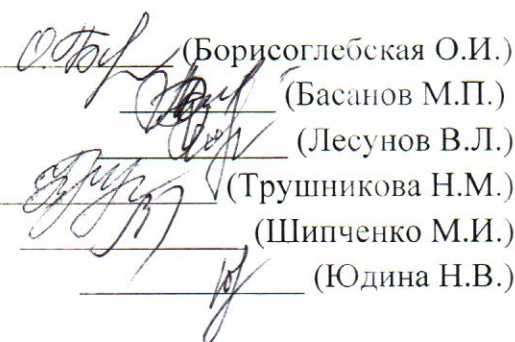 (Борисоглебская О.И.)
(Басанов М.П.)
(Лесунов В.Л.)
(Трушникова Н.М.)
(Шипченко М.И.)
(Юдина Н.В.)